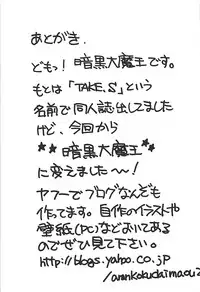 あとがき.
どもっ！暗黒大魔王です。
もとは「TAKE.S」という
名前で同人誌出してました
けど、今回から
**暗黒大魔王**
に変えました〜！
ヤフーでブログなんぞも
作ってます。自作のイラストや
壁紙(PC)などおいてある
のでぜひ見て下さい。
http://blogs.yahoo.co.jp
/ankokudaimaou2